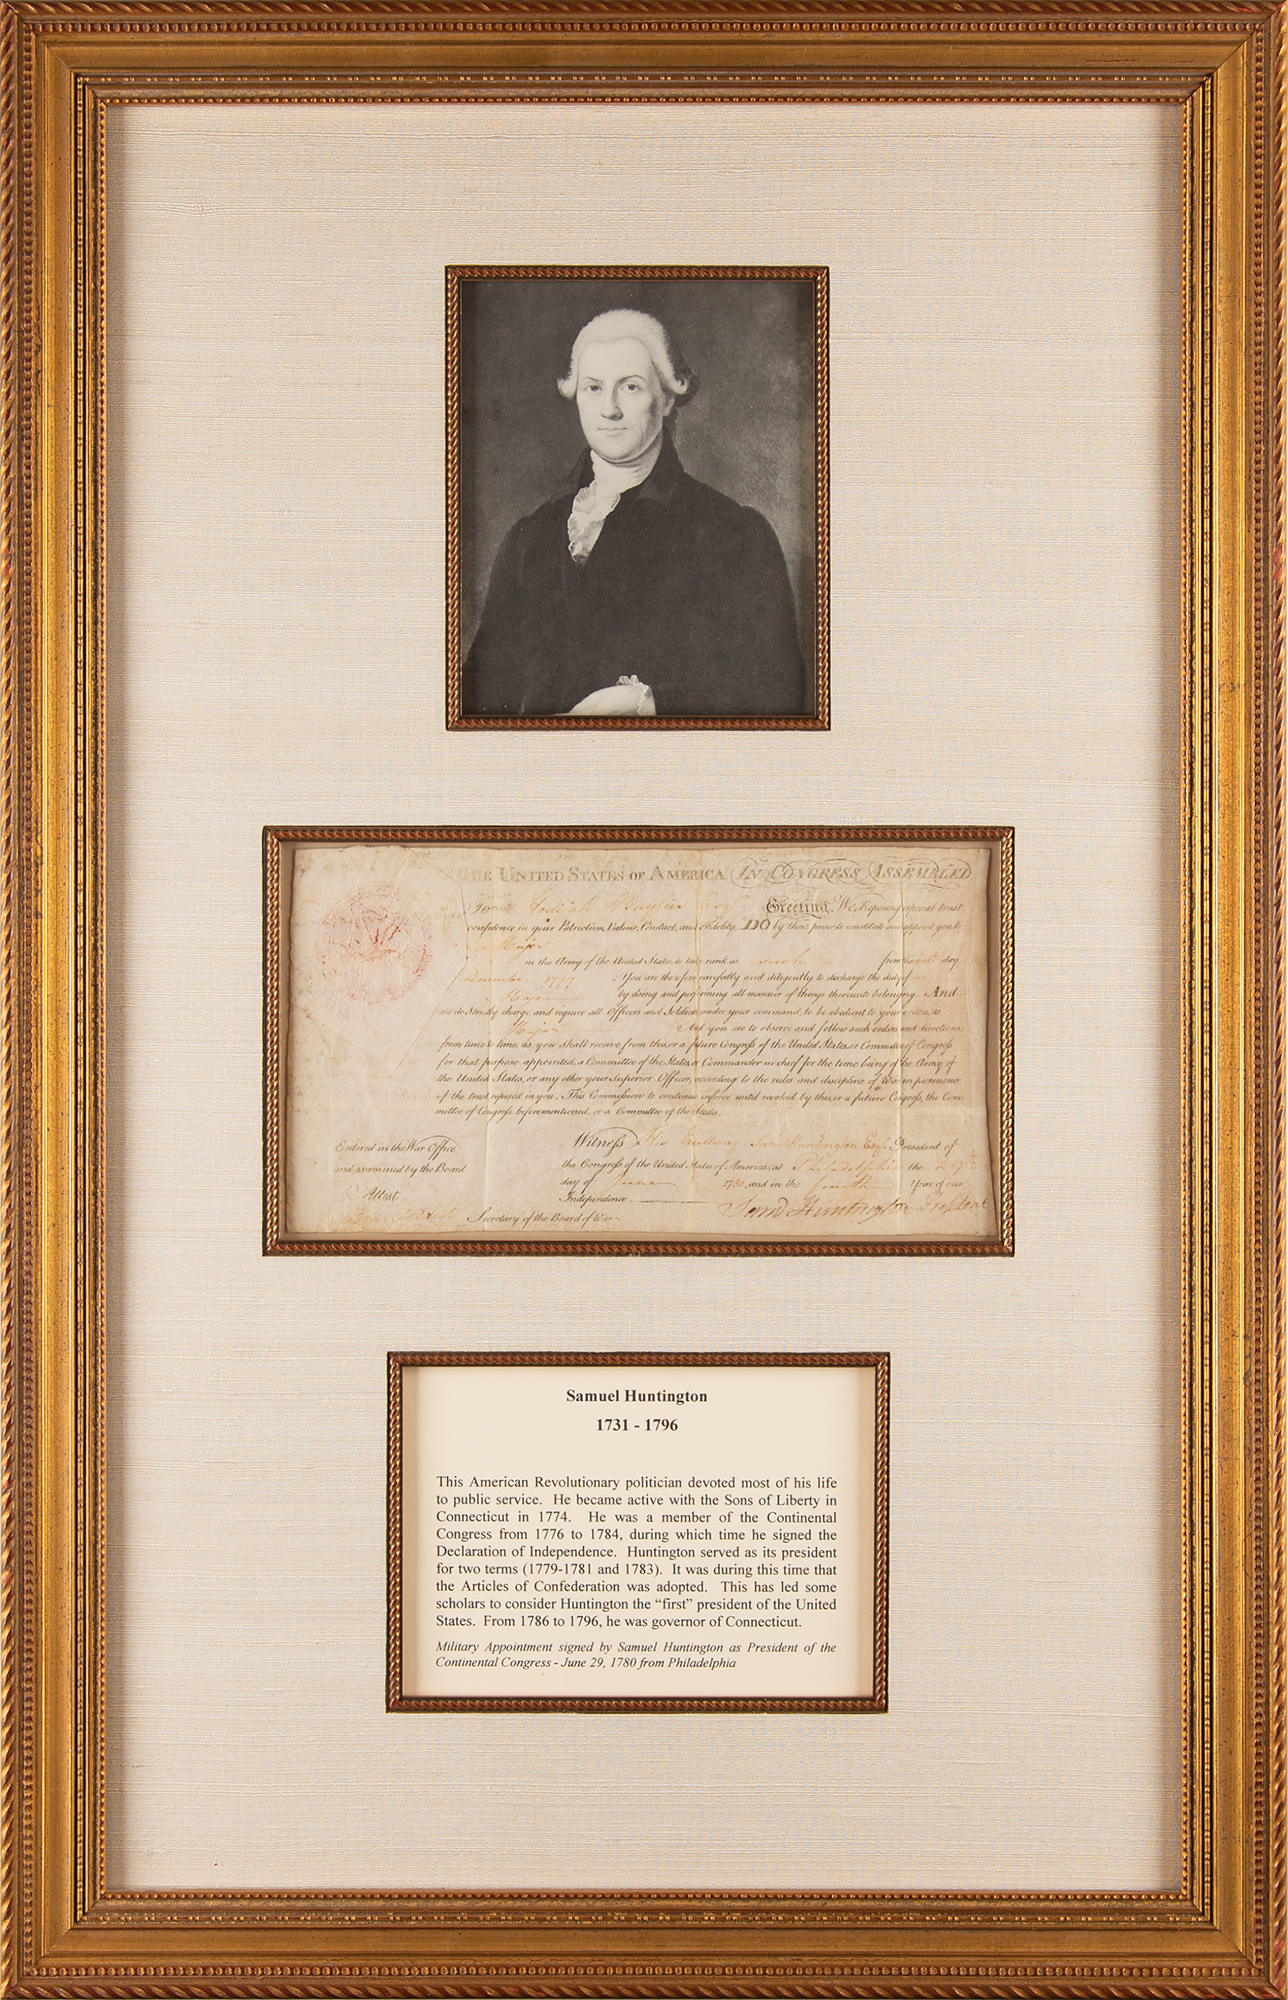 THE UNITED STATES OF AMERICA IN CONGRESS ASSEMBLED
To Hodijah Baylies Esqr. Greeting. We, Reposing especial trust
confidence in your Patriotism, Valour, Conduct, and Fidelity, DO by these presents constitute and appoint you to
Major
in the Army of the United States, to take rank as such from the day
December 1777 You are therefore carefully and diligently to discharge the duty of
Major by doing and performing all manner of things thereunto belonging. And
we do Strictly charge and require all Officers and Soldiers under your command, to be obedient to your orders, as
Major And you are to observe and follow such orders and directions
from time to time, as you shall receive from this, or a future Congress of the United States, or Committee of Congress
for that purpose appointed, a Committee of the States, or Commander in chief for the time being of the Army of
the United States, or any other your Superior Officer, according to the rules and discipline of War, in
of the trust reposed in you. This Commission to continue in force until revoked by this, or a future Congress, the Com-
mittee of Congress beforementioned, or a Committee of the States.
Entered in the War Office
and examined by the Board
Attest
Secretary of the Board of War
Witness His Excellency Saml Huntington Esqr. President of
the Congress of the United States of America, at Philadelphia the 29th
day of June 1780, and in the fourth Year of our
Independence.
Saml Huntington President
Samuel Huntington
1731 - 1796
This American Revolutionary politician devoted most of his life
to public service. He became active with the Sons of Liberty in
Connecticut in 1774. He was a member of the Continental
Congress from 1776 to 1784, during which time he signed the
Declaration of Independence. Huntington served as its president
for two terms (1779-1781 and 1783). It was during this time that
the Articles of Confederation was adopted. This has led some
scholars to consider Huntington the “first” president of the United
States. From 1786 to 1796, he was governor of Connecticut.
Military Appointment signed by Samuel Huntington as President of the
Continental Congress - June 29, 1780 from Philadelphia